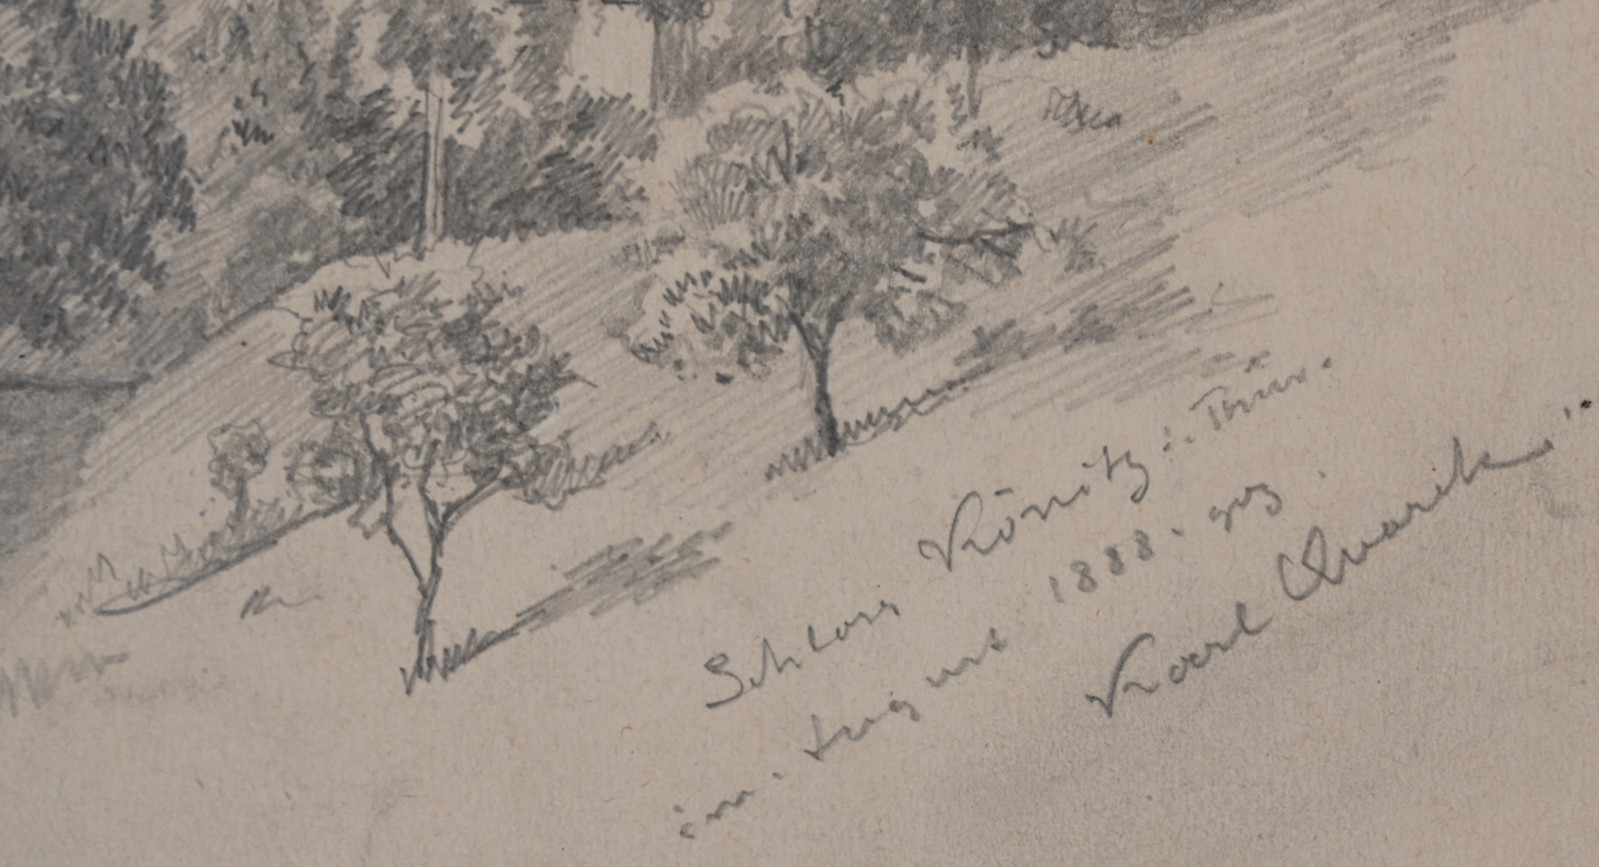 Schloss Könitz i. Thür.
im. August 1888. gez.
Karl Quarck